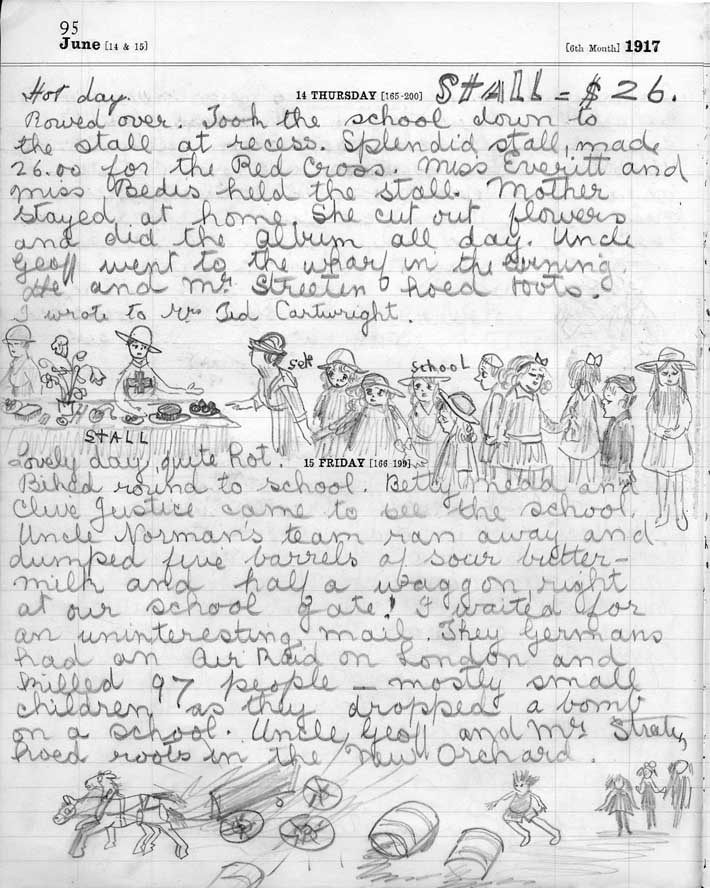 95
June [14 & 15] [6th Month] 1917
Hot day. 14 THURSDAY [165-200] STALL = $26.
Rowed over. Took the school down to
the stall at recess. Splendid stall, made
26.00 for the Red Cross. Miss Everitt and
miss Bedis held the stall. Mother
stayed at home. She cut out flowers
and did the album all day. Uncle
Geoff went to the wharf in the evening.
He and Mr Streeten hoed roots.
I wrote to Mrs Ted Cartwright.
self school
STALL
Lovely day, quite hot. 15 FRIDAY [166-199]
Biked round to school. Betty Mead and
Clive Justice came to see the school.
Uncle Norman's team ran away and
dumped five barrels of sour butter-
milk and half a waggon right
at our school gate! I waited for
an uninteresting mail. They Germans
had an Air Raid on London and
killed 97 people – mostly small
children as they dropped a bomb
on a school. Uncle Geoff and Mr
hoed roots in the New Orchard.